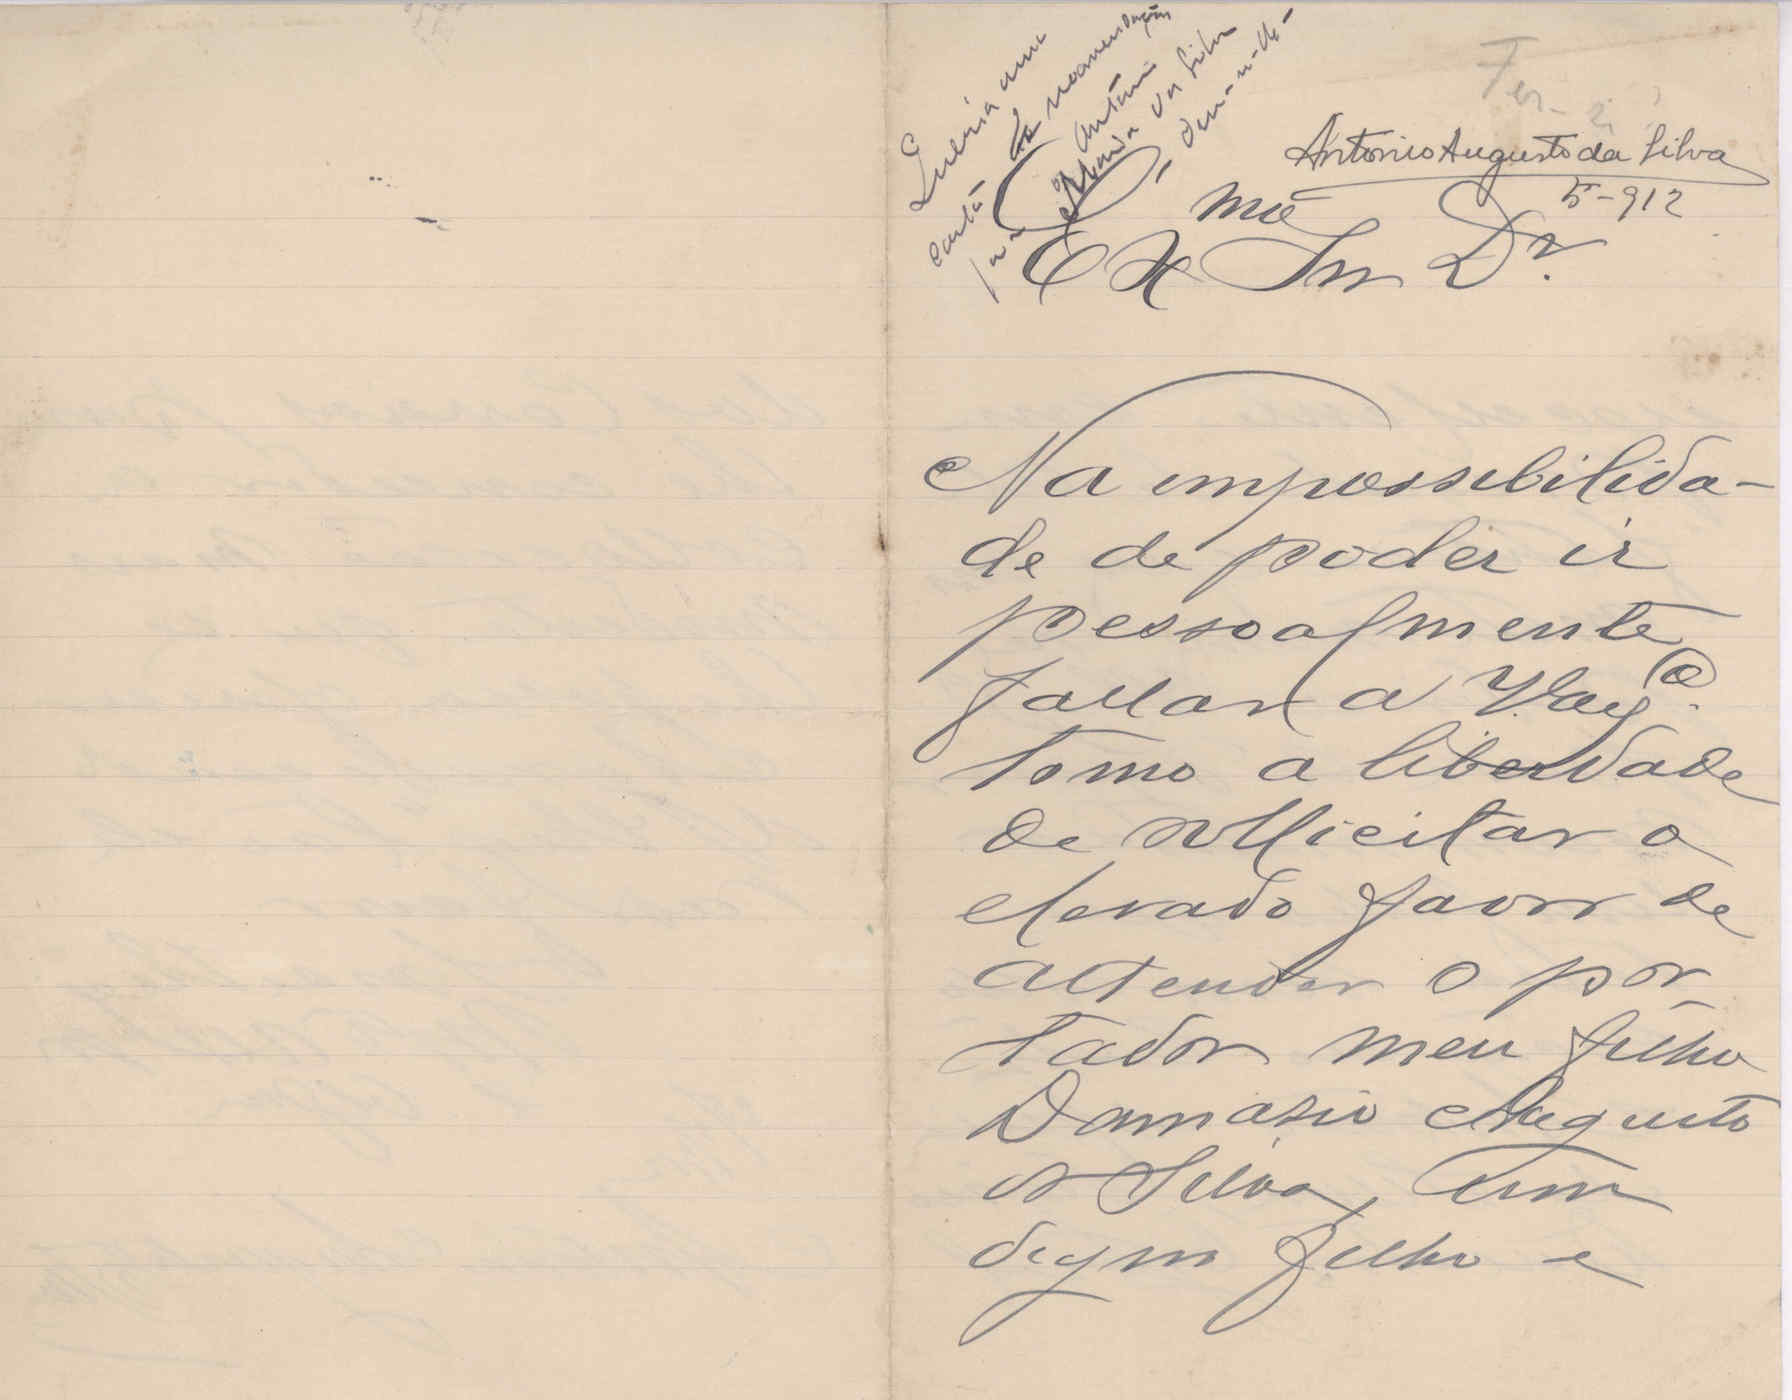 Queria uma
carta de recomendação
para António
Maria da Silva
Antonio Augusto da Silva
5-912
Exmo Snr Dr.
Na impossibilida-
de de poder ir
pessoalmente
fallar a V. Exª.
tomo a liberdade
de sollicitar o
elevado favor de
attender o por
tador meu filho
Damasio Augusto
da Silva, um
digno filho e